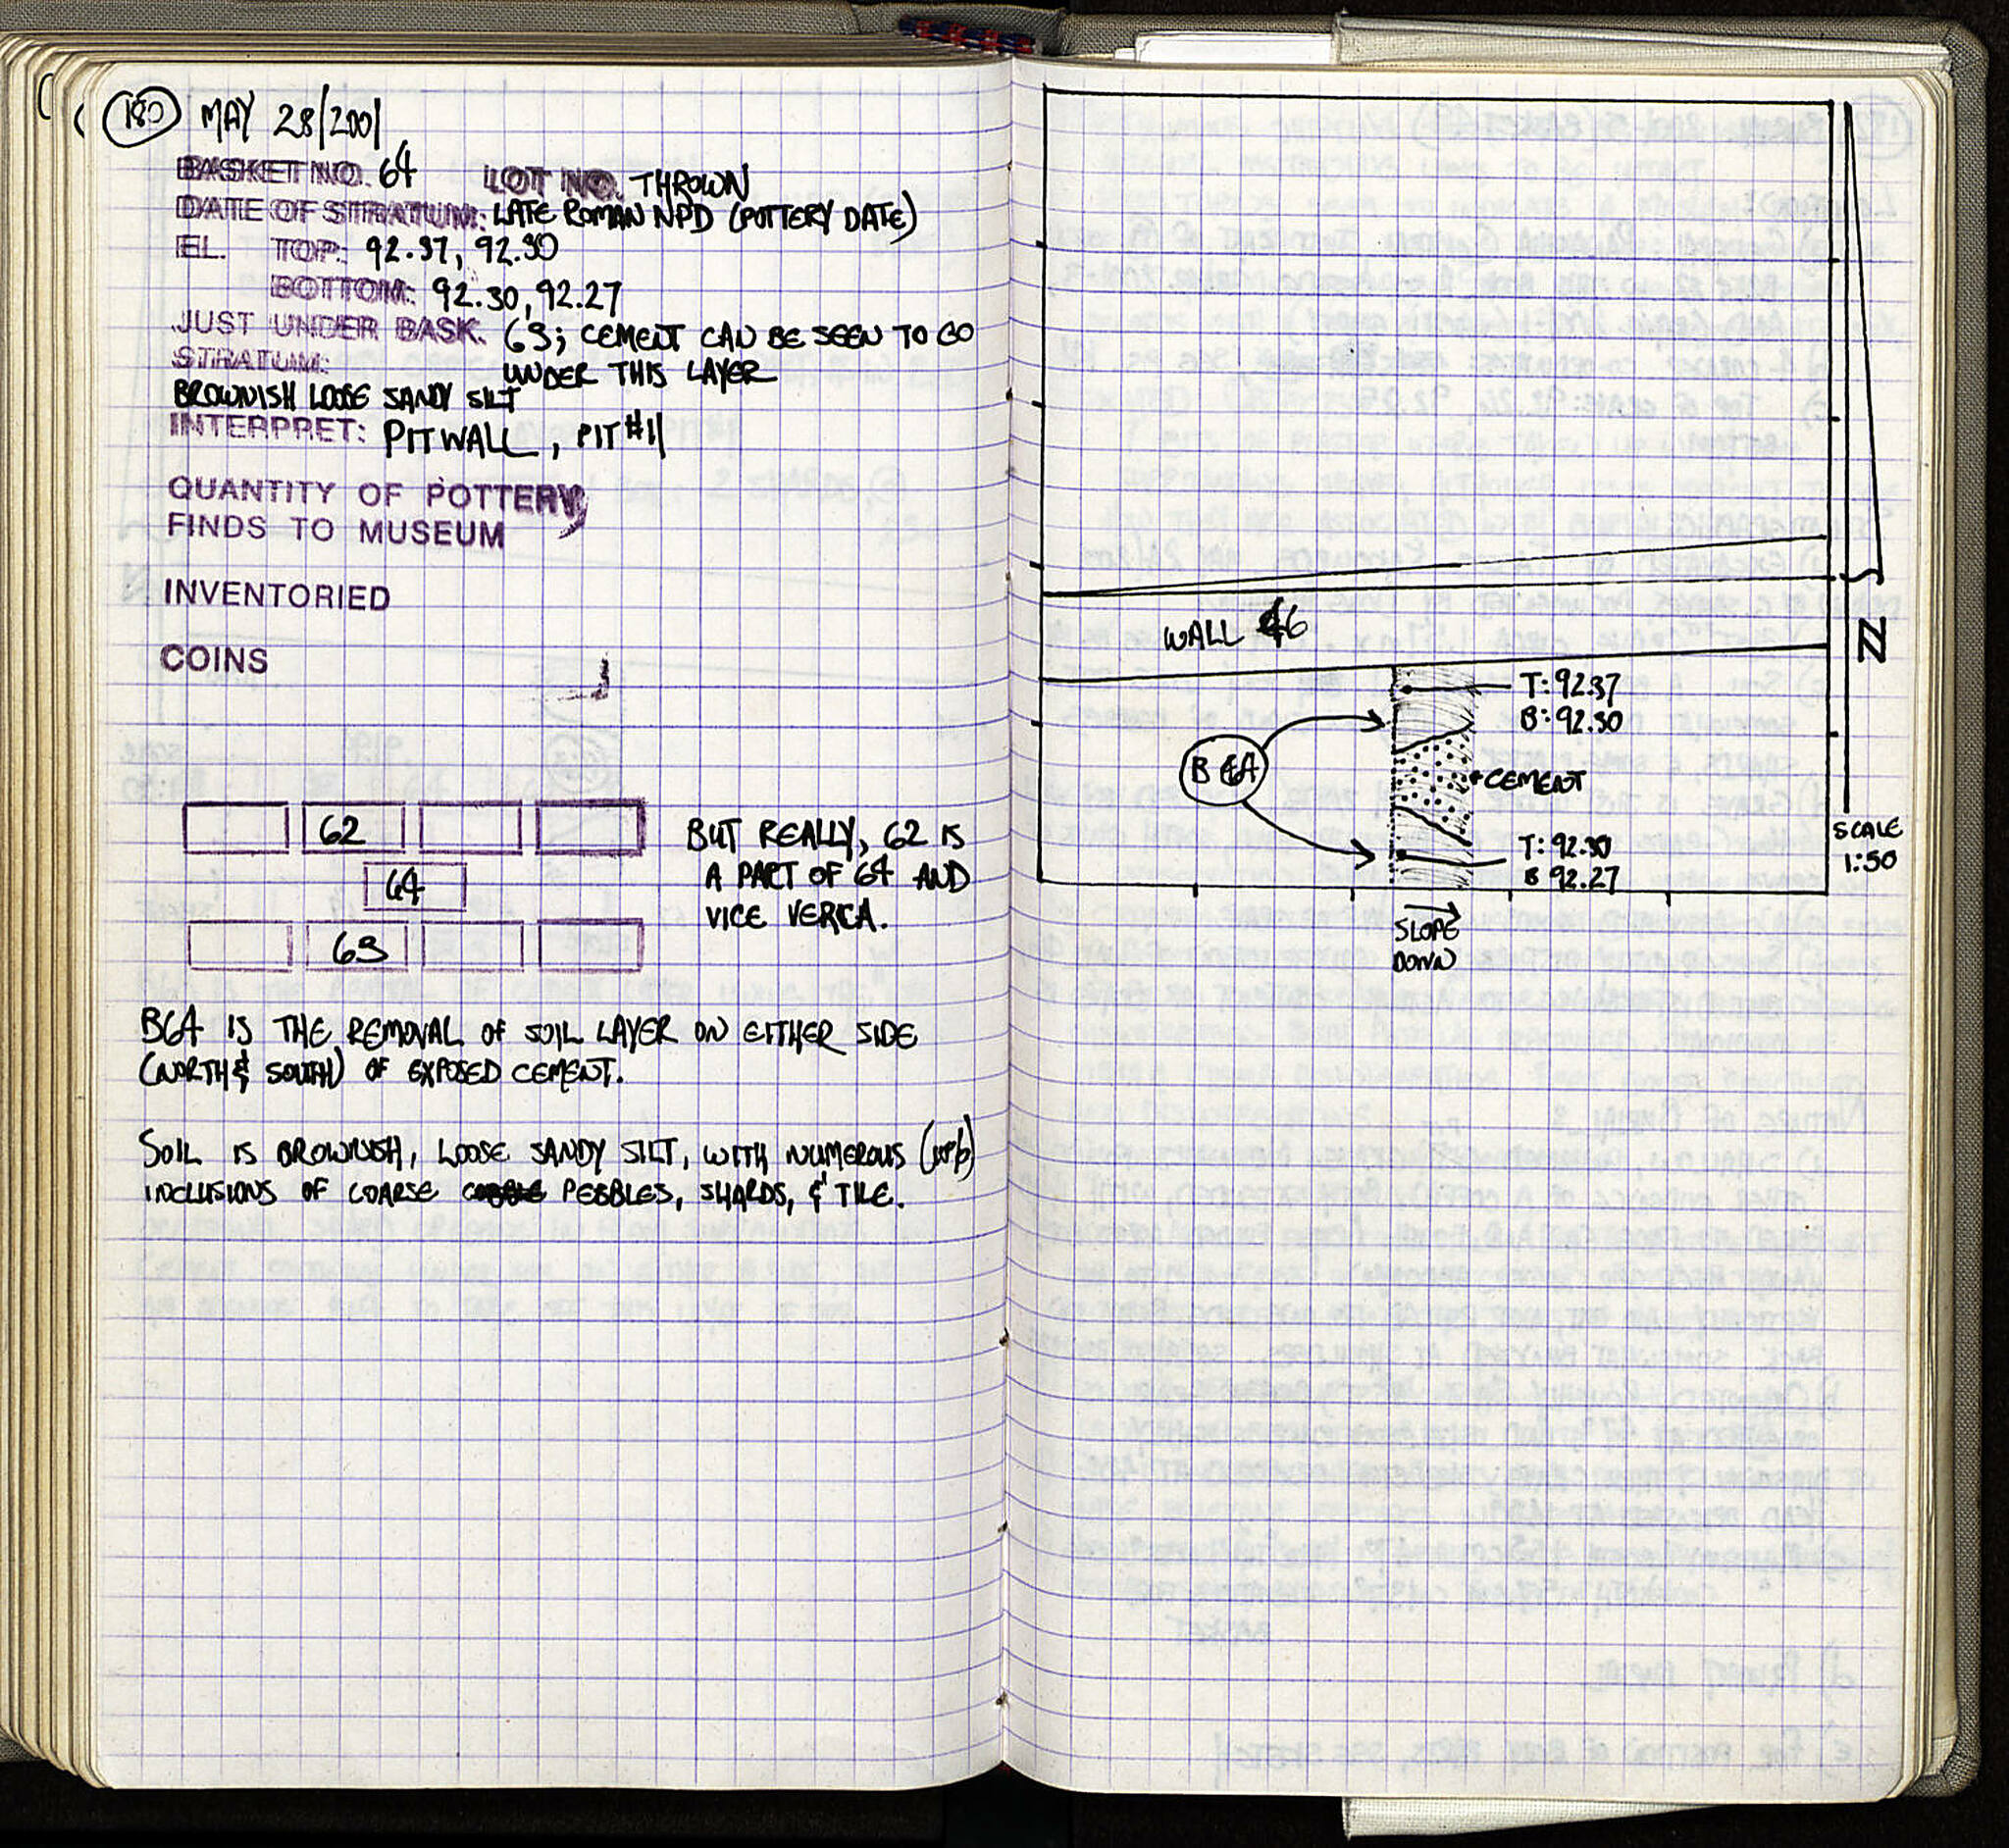 180 MAY 28/2001
BASKET NO. 64 LOT NO. THROWN
DATE OF STRATUM: LATE ROMAN NPD (POTTERY DATE)
EL. TOP: 92.37, 92.30
BOTTOM: 92.30, 92.27
JUST UNDER BASK. 63; CEMENT CAN BE SEEN TO GO
STRATUM: UNDER THIS LAYER
BROWNISH LOOSE SANDY SILT
INTERPRET: PIT WALL, PIT #1
QUANTITY OF POTTERY
FINDS TO MUSEUM
INVENTORIED
COINS
62
64
63
BUT REALLY, 62 IS
A PART OF 64 AND
VICE VERCA.
B64 IS THE REMOVAL OF SOIL LAYER ON EITHER SIDE
(NORTH & SOUTH) OF EXPOSED CEMENT.
SOIL IS BROWNISH, LOOSE SANDY SILT, WITH NUMEROUS
INCLUSIONS OF COARSE PEBBLES, SHARDS, & TILE.
N
WALL 6
T: 92.37
B: 92.30
B 64
CEMENT
T: 92.30
B 92.27
SCALE
1:50
SLOPE
DOWN